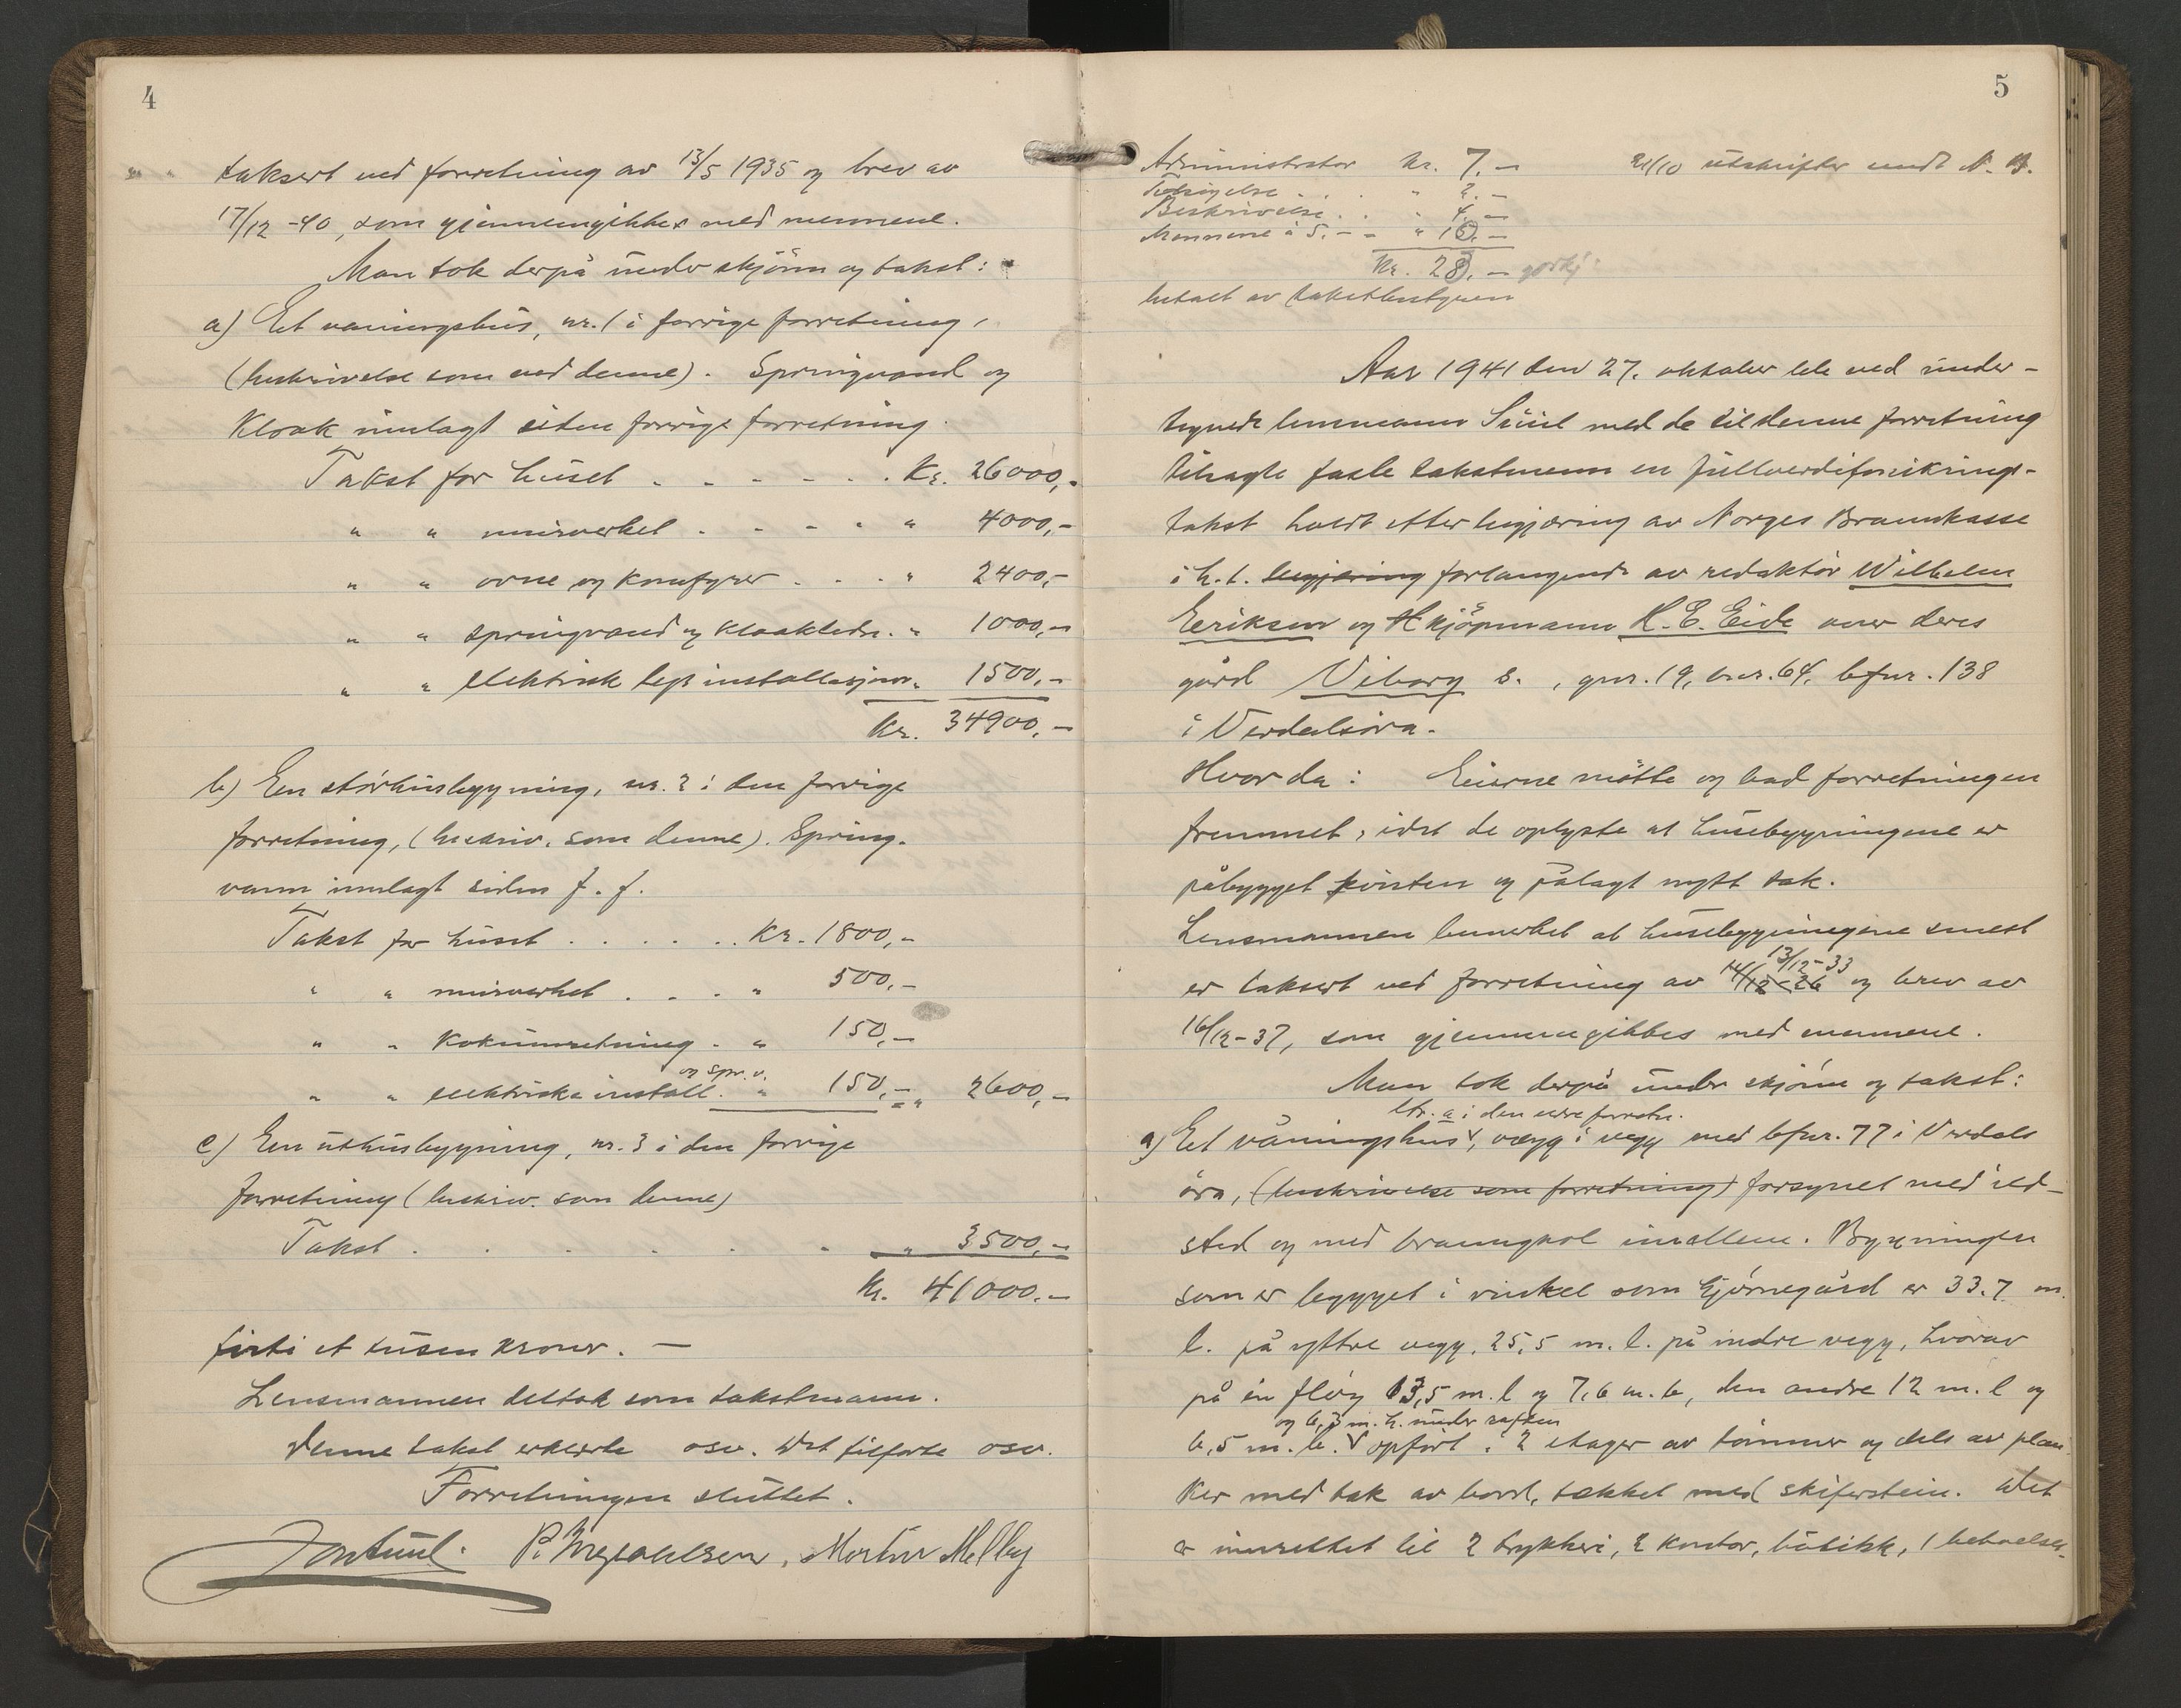 4
" " taksert ved forretning av 13/5 1935 og brev av
17/12 -40, som gjennemgikkes med mennene.
Man tok derpå under skjönn og takst:
a) Et våningshus, nr. 1 i forrige forretning,
(beskrivelse som ved denne). Springvand og
Kloak innlagt siden forrige forretning.
Takst for huset . . . . . . Kr. 26000,-
" " murverket . . . . " 4000,-
" " ovne og komfyrer . . . " 2400,-
" " springvand og kloakledn. " 1000,-
" " elektrisk lysinstallasjon " 1500,-
Kr. 34900,-
b) En störhusbygning, nr. 2 i den forrige
forretning, (beskriv. som denne). Spring-
vann innlagt siden f. f.
Takst for huset . . . . . . Kr. 1800,-
" " murverket . . . . " 500,-
" " Kokinnretning . " 150,-
og spr. v.
" " elektriske install. " 150,- " 2600,-
c) En uthusbygning, nr. 3 i den forrige
forretning (beskriv. som denne)
Takst . . . . . . " 3500,-
Kr. 41000.-
firti et tusen kroner. -
Lensmannen deltok som takstmann.
Denne takst erklærte osv. Det tilförte osv.
Forretningen sluttet.
Jon Suul. P. , Morten Melby
5
Administrator Kr. 7.-
21/10 utskrifter sendt N. B.
Tilsigelse . . " 2.-
Beskrivelse . . " 4.-
Mennene à 5.- - " 15.-
Kr. 28.-
betalt av takstbestyreren
Aar 1941 den 27. oktober ble ved under-
tegnede lensmann Suul med de til denne forretning
tilsagte faste takstmenn en fullverdiforsikrings-
takst holdt efter begjæring av Norges Brannkasse
i h. t. begjæring forlangende av redaktör Wilhelm
Eriksen og kjöpmann H. E. Eide over deres
gård Viborg s. , gnr. 19, bnr. 64, bfnr. 138
i Verdalsöra.
Hvor da: Eierne mötte og bad forretningen
fremmet, idet de oplyste at husebygningene er
påbygget kvisten og pålagt nytt tak.
Lensmannen bemerket at husebygningene senest
13/12-33
er taksert ved forretning av 14/12-26 og brev av
16/12-37, som gjennemgikkes med mennene.
Man tok derpå under skjönn og takst:
ltr. a i den eldre forretn.
a) Et våningshus v, vegg i vegg med bfnr. 77 i Verdals
öra, (beskrivelse som forretning) forsynet med ild-
sted og med branngavl imellem. Bygningen
som er bygget i vinkel som hjörnegård er 33.7 m.
l. på yttre vegg, 25,5 m. l. på indre vegg, hvorav
på én flöy 13,5 m. l og 7,6 m. b, den andre 12 m. l og
og 6,3 m. h. under raften
6,5 m. b. v opfört i 2 etager av tömmer og dels av plan
ker med tak av bord, tekket med skiferstein. Det
er innrettet til 2 trykkeri, 2 kontor, butikk, 1 behandlings-